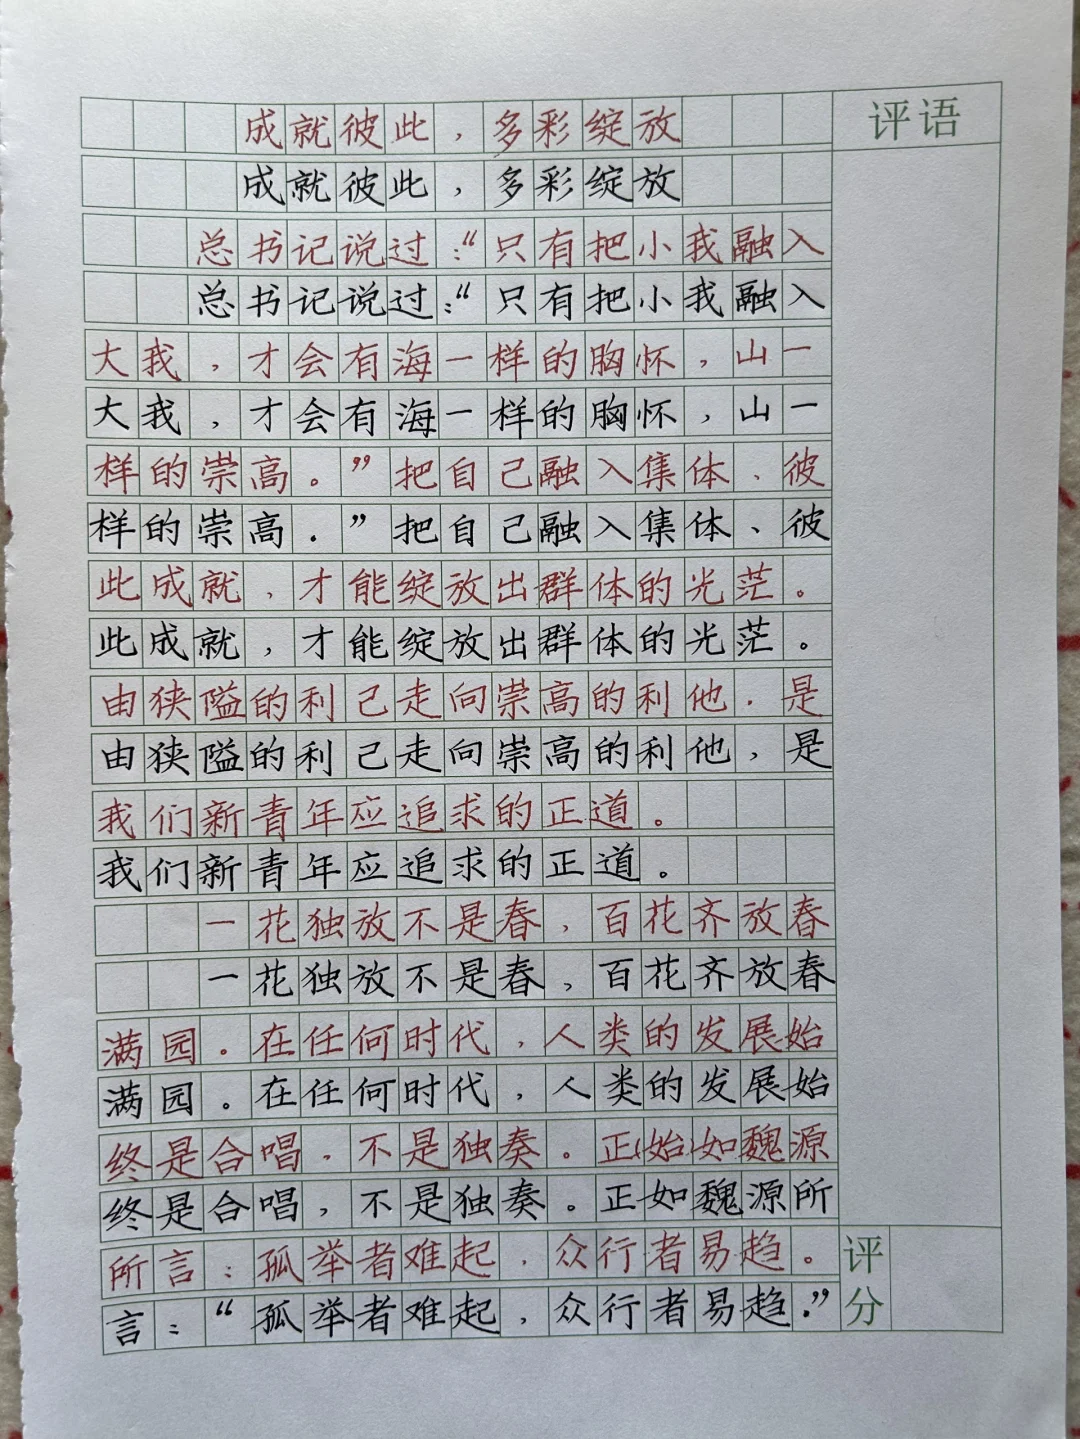 成就彼此，多彩绽放
评语
成就彼此，多彩绽放
总书记说过：“只有把小我融入
总书记说过：“只有把小我融入
大我，才会有海一样的胸怀，山一
大我，才会有海一样的胸怀，山一
样的崇高。”把自己融入集体、彼
样的崇高．”把自己融入集体、彼
此成就，才能绽放出群体的光茫。
此成就，才能绽放出群体的光茫。
由狭隘的利己走向崇高的利他，是
由狭隘的利己走向崇高的利他，是
我们新青年应追求的正道。
我们新青年应追求的正道。
一花独放不是春，百花齐放春
一花独放不是春，百花齐放春
满园。在任何时代，人类的发展始
满园。在任何时代，人类的发展始
终是合唱，不是独奏。正(始)如魏源
终是合唱，不是独奏。正如魏源所
所言：孤举者难起，众行者易趋。
言：“孤举者难起，众行者易趋．”
评分